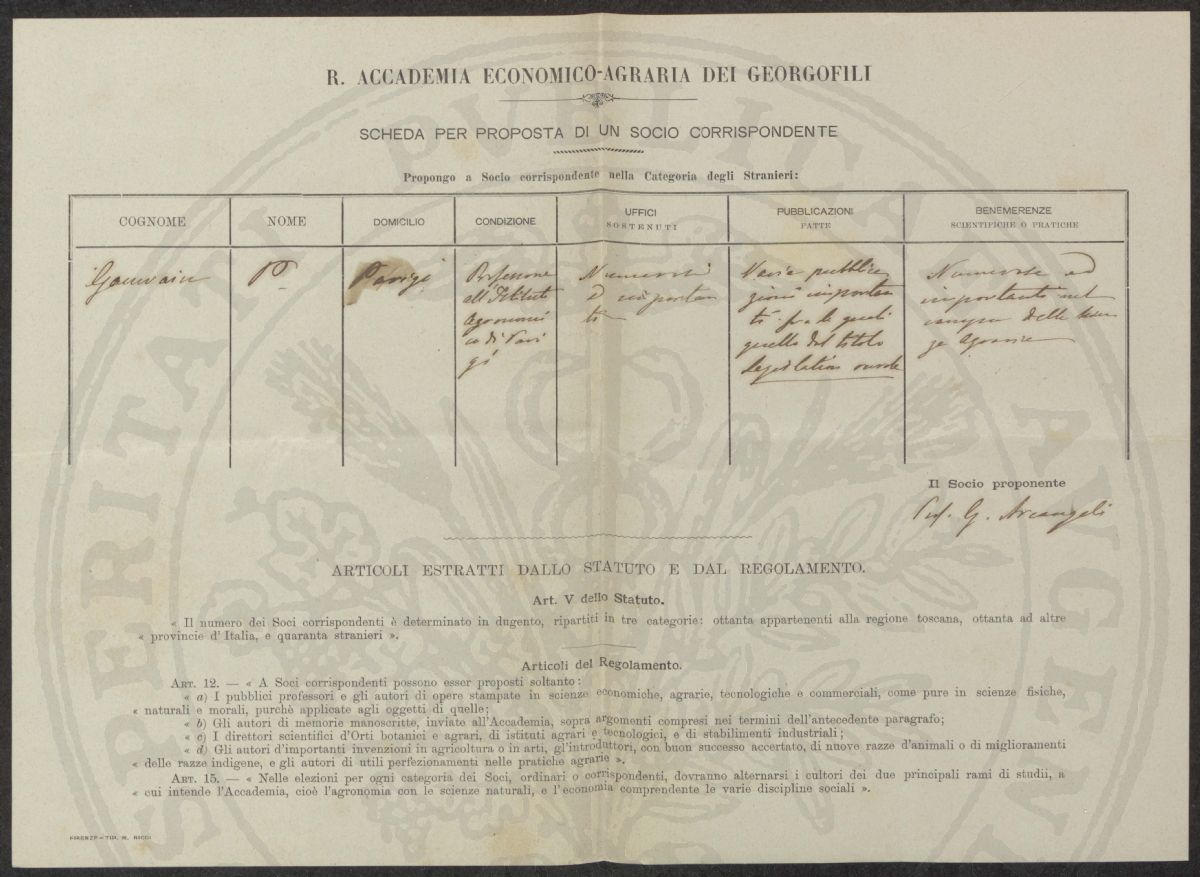 R. ACCADEMIA ECONOMICO-AGRARIA DEI GEORGOFILI
SCHEDA PER PROPOSTA DI UN SOCIO CORRISPONDENTE
Propongo a Socio corrispondente nella Categoria degli Stranieri:
COGNOME
NOME
DOMICILIO
CONDIZIONE
UFFICI
SOSTENUTI
PUBBLICAZIONI
FATTE
BENEMERENZE
SCIENTIFICHE O PRATICHE
Gauwain
P.
Parigi
Professore
all'Istituto
Agronomi
co di Pari
gi
Numerosi
ed importan
ti
Varie pubblica
zioni importan
ti fra le quali
quella dal titolo
Legislation rurale
Numerose ed
importanti nel
campo delle scien
ze agrarie
Il Socio proponente
Prof. G. Arcangeli
ARTICOLI ESTRATTI DALLO STATUTO E DAL REGOLAMENTO.
Art. V dello Statuto.
« Il numero dei Soci corrispondenti è determinato in dugento, ripartiti in tre categorie: ottanta appartenenti alla regione toscana, ottanta ad altre
« provincie d' Italia, e quaranta stranieri ».
Articoli del Regolamento.
ART. 12. — « A Soci corrispondenti possono esser proposti soltanto:
« a) I pubblici professori e gli autori di opere stampate in scienze economiche, agrarie, tecnologiche e commerciali, come pure in scienze fisiche,
« naturali e morali, purchè applicate agli oggetti di quelle;
« b) Gli autori di memorie manoscritte, inviate all'Accademia, sopra argomenti compresi nei termini dell'antecedente paragrafo;
« c) I direttori scientifici d'Orti botanici e agrari, di istituti agrari e tecnologici, e di stabilimenti industriali;
« d) Gli autori d'importanti invenzioni in agricoltura o in arti, gl'introduttori, con buon successo accertato, di nuove razze d'animali o di miglioramenti
« delle razze indigene, e gli autori di utili perfezionamenti nelle pratiche agrarie ».
ART. 15. — « Nelle elezioni per ogni categoria dei Soci, ordinari o corrispondenti, dovranno alternarsi i cultori dei due principali rami di studii, a
« cui intende l'Accademia, cioè l'agronomia con le scienze naturali, e l'economia comprendente le varie discipline sociali ».
FIRENZE – TIP. M. RICCI
PROSPERITATI PVBLICAE AVGENDAE